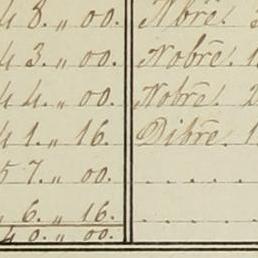 48. „ 00. Nbrẽ.
43. „ 00. Nobrẽ.
44. „ 00. Nobrẽ. 2
41. „ 16. Dibrẽ. 1
57. „ 00. . . . . .
6. „ 16. . . . . .
40. „ 00.